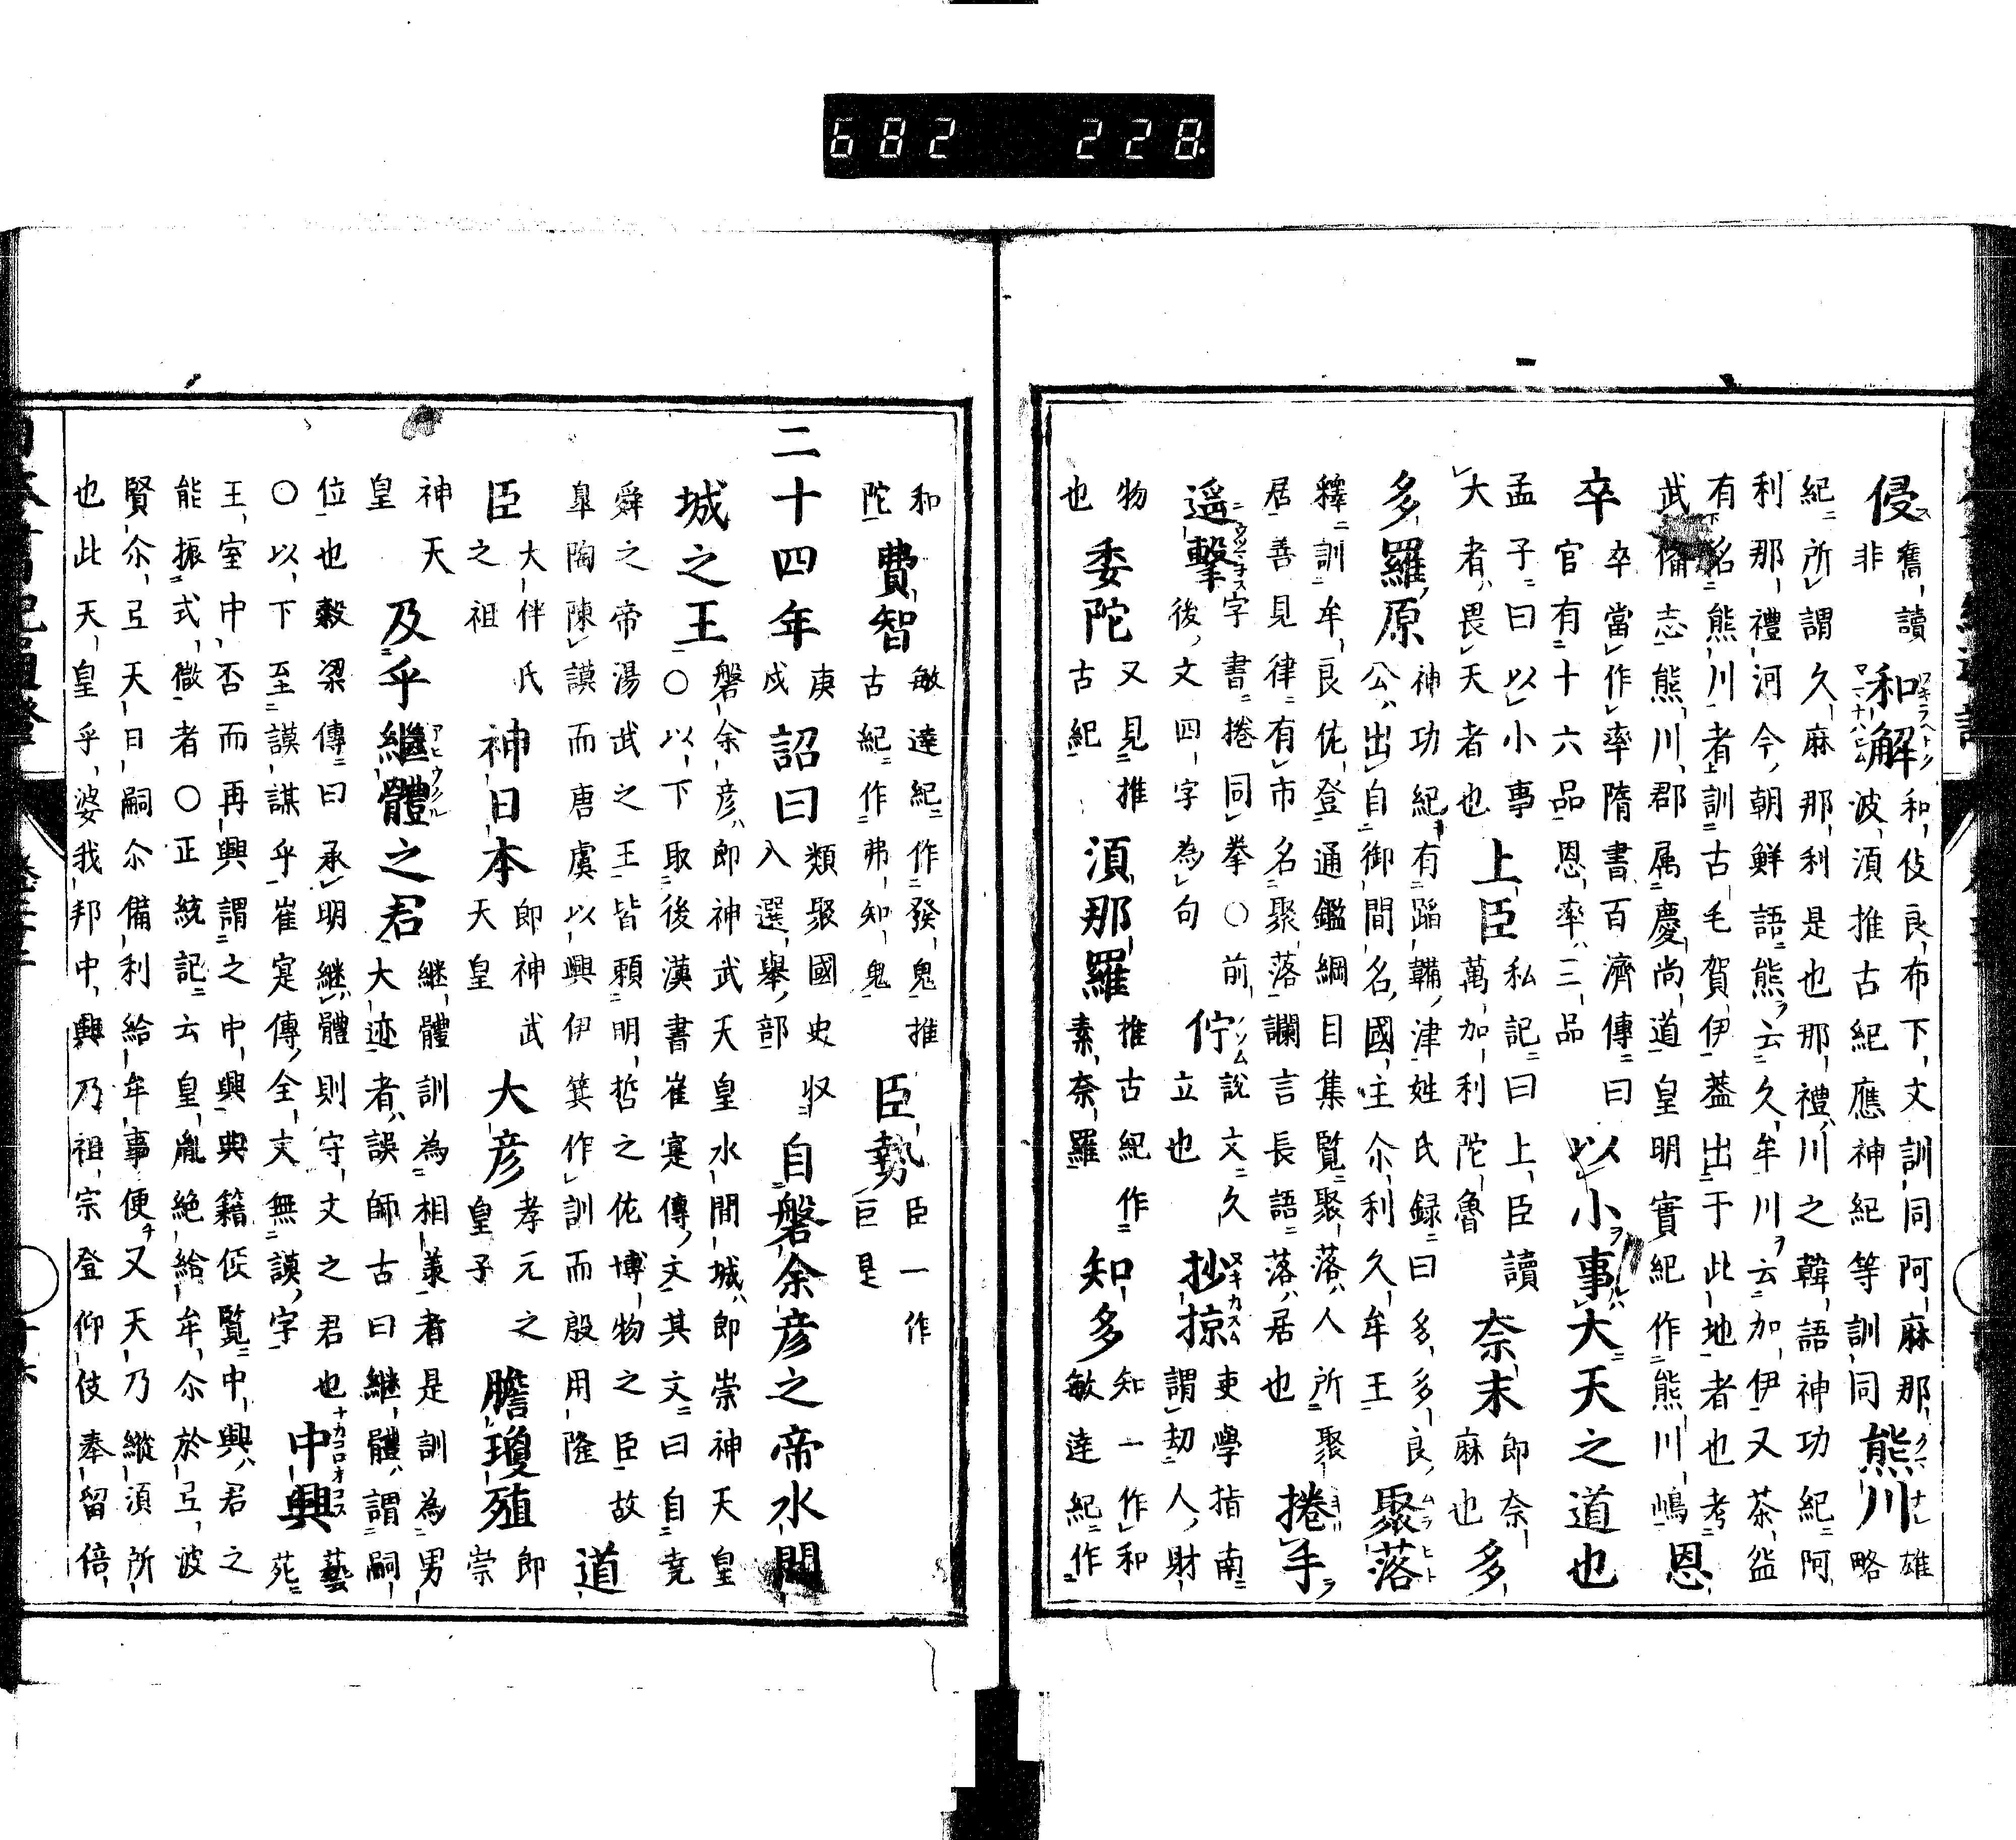 682 228
侵 舊讀非 和解 和伎良布下文訓同阿麻那波湏推古紀應神紀等訓同 熊川 雄略
紀所謂久麻那利是也那禮川之韓語神功紀阿
利那禮河今朝鮮語熊云久牟川云加伊又茶盆
有名熊川者訓古毛賀伊盖出于此地者也考
武備志熊川郡属慶尚道皇明實紀作熊川嶋 恩
卒 卒當作率隋書百濟傳曰官有十六品恩率三品 以小事大天之道也
孟子曰以小事大者畏天者也 上臣 私記曰上臣讀萬加利陀魯 奈末 即奈麻也 多
多羅原 神功紀有蹈鞴津姓氏録曰多多良公出自御間名國主尒利久牟王 聚落
釋訓牟良佐登通鑑綱目集覧聚落人所聚
居善見律有市名聚落讕言長語落居也 捲手
遥擊 字書捲同拳○前後文四字為句 佇 說文久立也 抄掠 吏學指南謂劫人財
物也 委陀 又見推古紀 湏那羅 推古紀作素奈羅 知多 知一作和敏達紀作
和陀 費智 敏達紀作發鬼推古紀作弗知鬼 臣勢 臣一作巨是
二十四年 庚戌 詔曰 類聚國史収入選舉部 自磐余彦之帝水間
城之王 磐余彦即神武天皇水間城即崇神天皇○以下取後漢書崔寔傳文其文曰自堯
舜之帝湯武之王皆頼明哲之佐博物之臣故
皐陶陳謨而唐虞以興伊箕作訓而殷用隆 道
臣 大伴氏之祖 神日本 即神武天皇 大彦 孝元之皇子 膽瓊殖 即崇
神天皇 及乎繼體之君 繼體訓為相羕者是訓為男大迹者誤師古曰繼體謂嗣
位也穀梁傳曰承明繼體則守文之君也 中興 藝苑
○以下至謨謀乎崔寔傳全文無謨字
王室中否而再興謂之中興典籍侫覧中興君之
能振式微者○正統記云皇胤絶給牟尒於弖波
賢尒弖天日嗣尒備利給牟事便又天乃縱湏所
也此天皇乎婆我邦中興乃祖宗登仰伎奉留倍